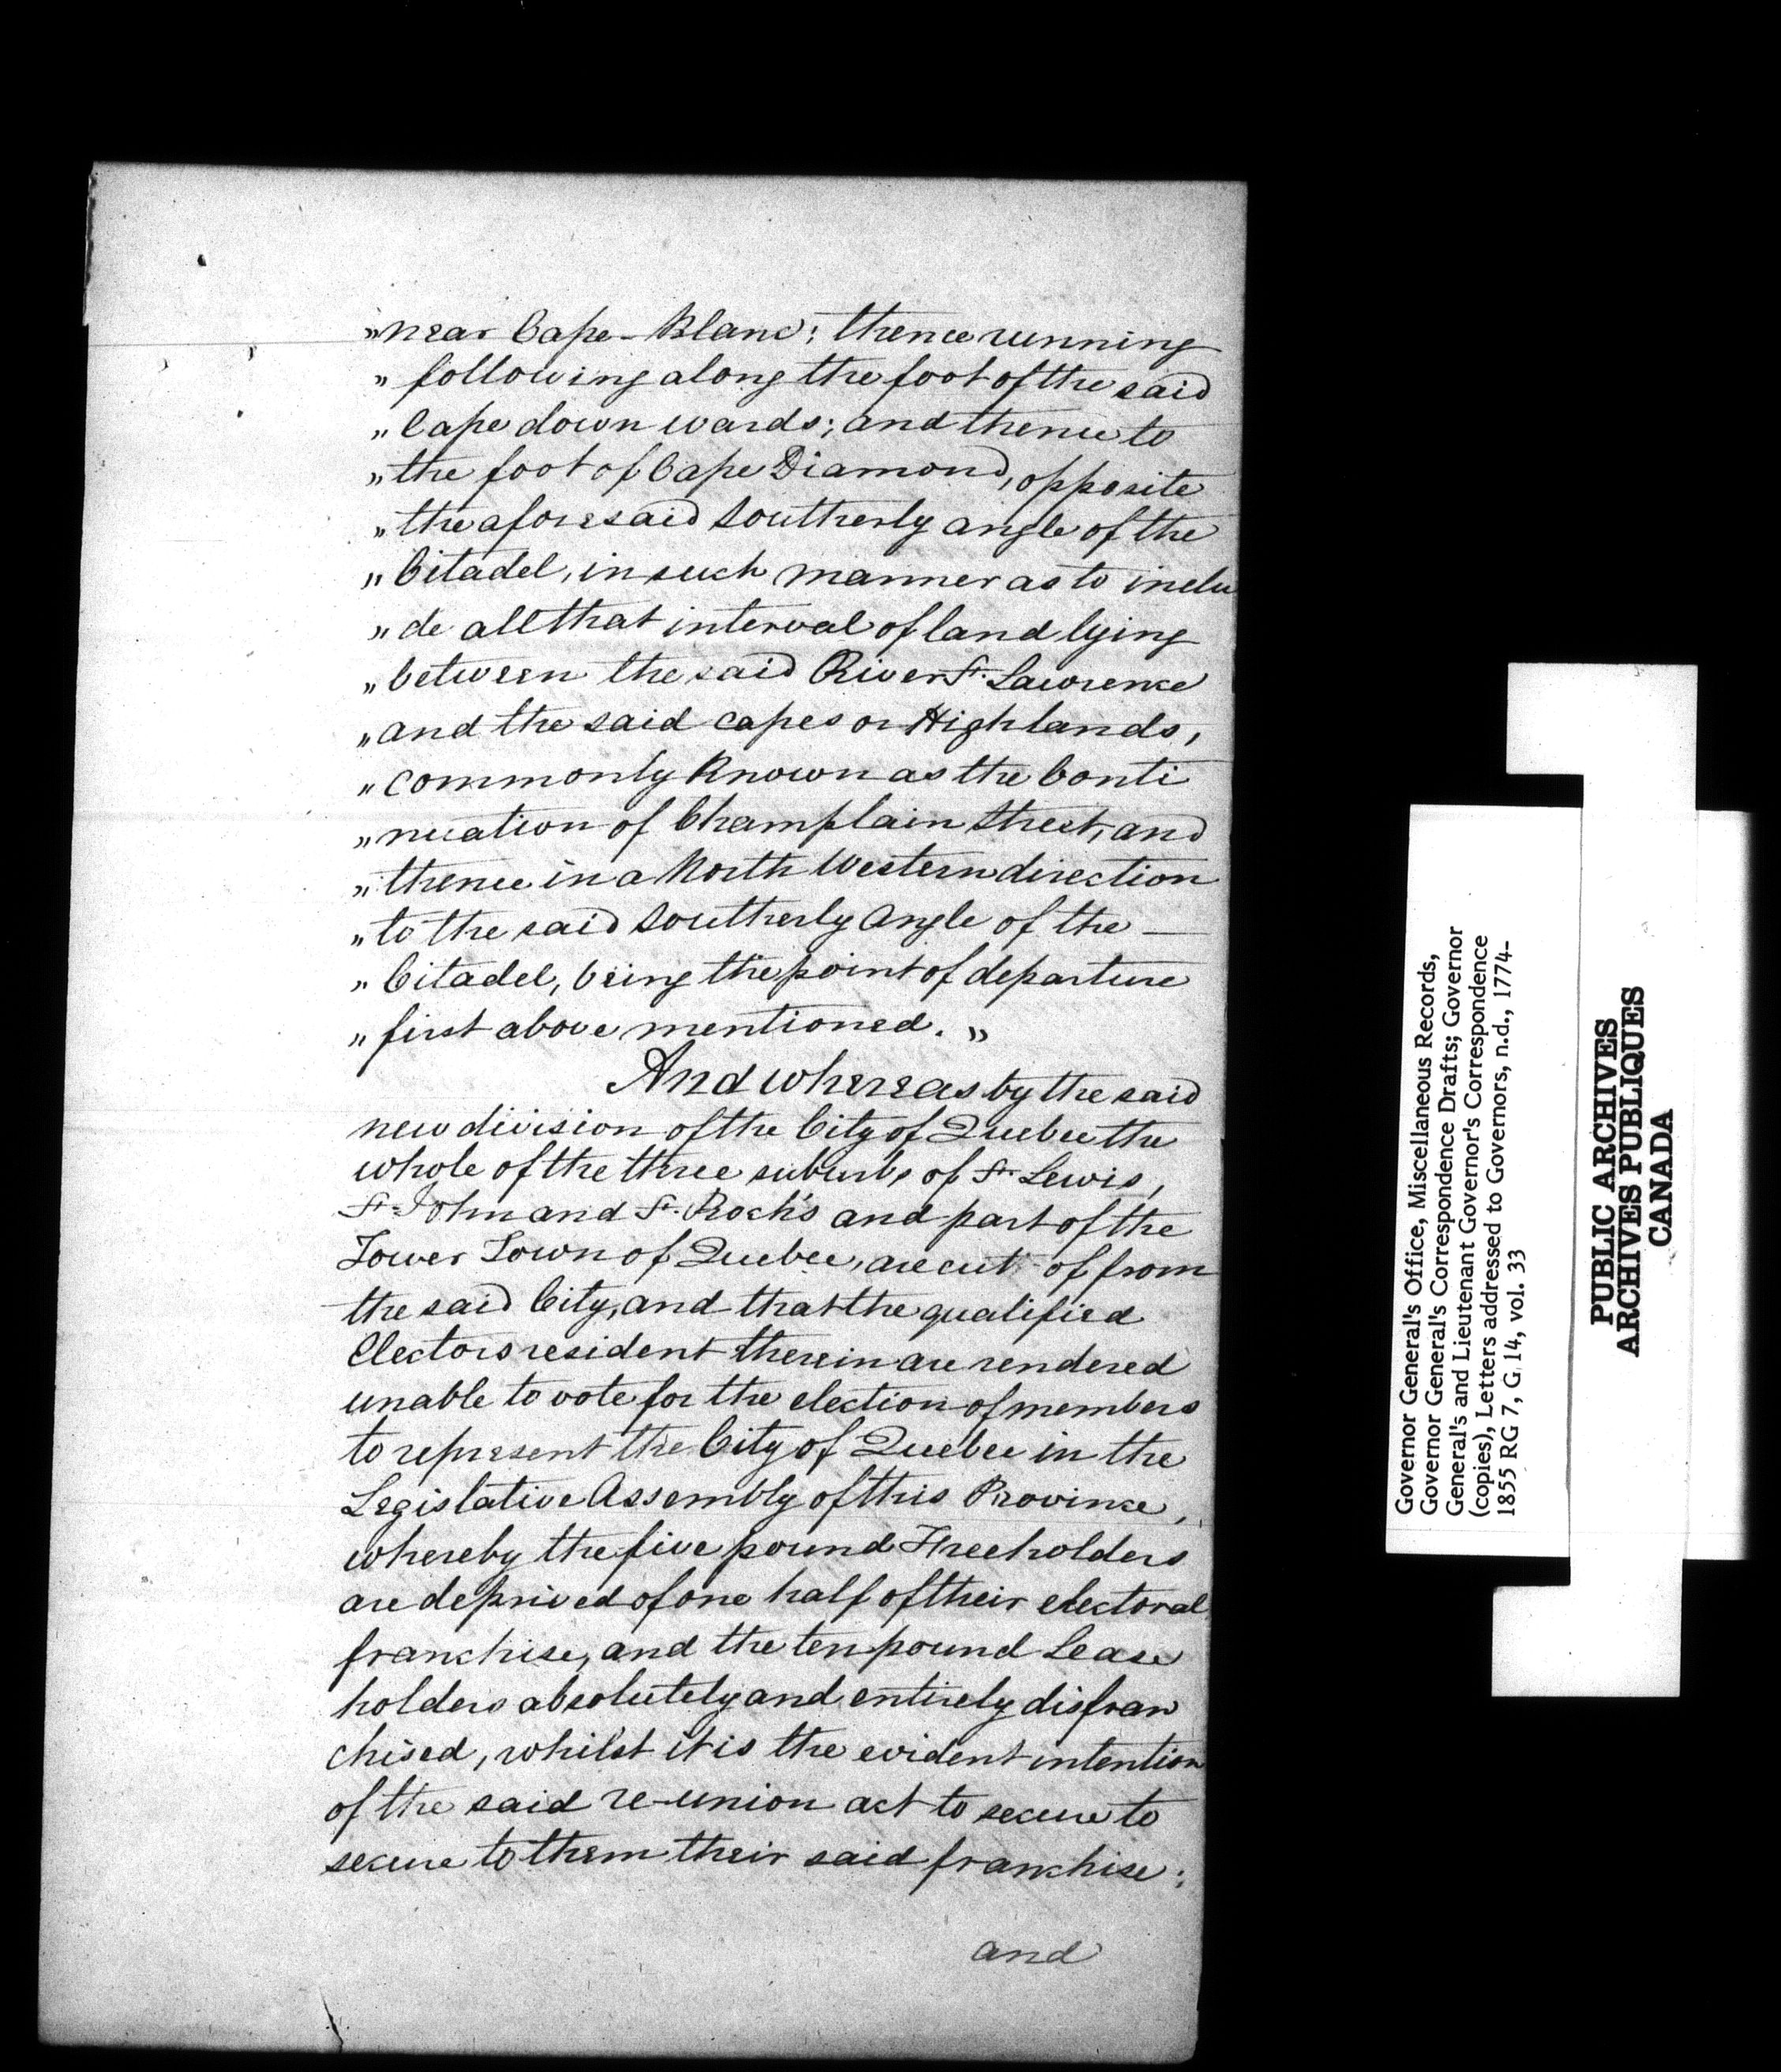 „near Cape-Blanc; thence running
„ following along the foot of the said
„ Cape down wards; and thence to
„ the foot of Cape Diamond, opposite
„ the aforesaid Southerly angle of the
„ Citadel, in such manner as to inclu
„ de all that interval of land lying
„ between the said River St. Lawrence
„ and the said capes or Highlands,
„ commonly known as the Conti
„ nuation of Champlain Street, and
„ thence in a North Western direction
„ to the said Southerly Angle of the —
„ Citadel, being the point of departure
„ first above mentioned. „
And whereas by the said
new division of the City of Quebec the
whole of the three suburbs of St. Lewis,
St. John and St. Roch's and part of the
Lower Town of Quebec, are cut of from
the said City, and that the qualified
Electors resident therein are rendered
unable to vote for the election of members
to represent the City of Quebec in the
Legislative Assembly of this Province,
whereby the five pound Freeholders
are deprived of one half of their electoral
franchise, and the ten pound Lease
holders absolutely and entirely disfran
chised, whilst it is the evident intention
of the said re-union act to secure to
secure to them their said franchise;
and
Governor General's Office, Miscellaneous Records,
Governor General's Correspondence Drafts; Governor
General's and Lieutenant Governor's Correspondence
(copies), Letters addressed to Governors, n.d., 1774-
1855 RG 7, G 14, vol. 33
PUBLIC ARCHIVES
ARCHIVES PUBLIQUES
CANADA